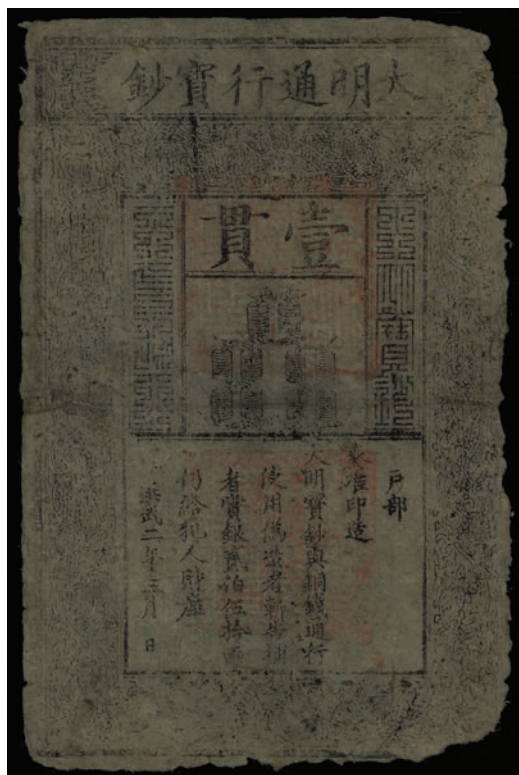 大明通行寶鈔
壹貫
戶部
奏准印造
大明寶鈔與銅錢通行
使用偽造者斬告捕
者賞銀貳伯伍拾兩
仍給犯人財產
洪武二年三月 日